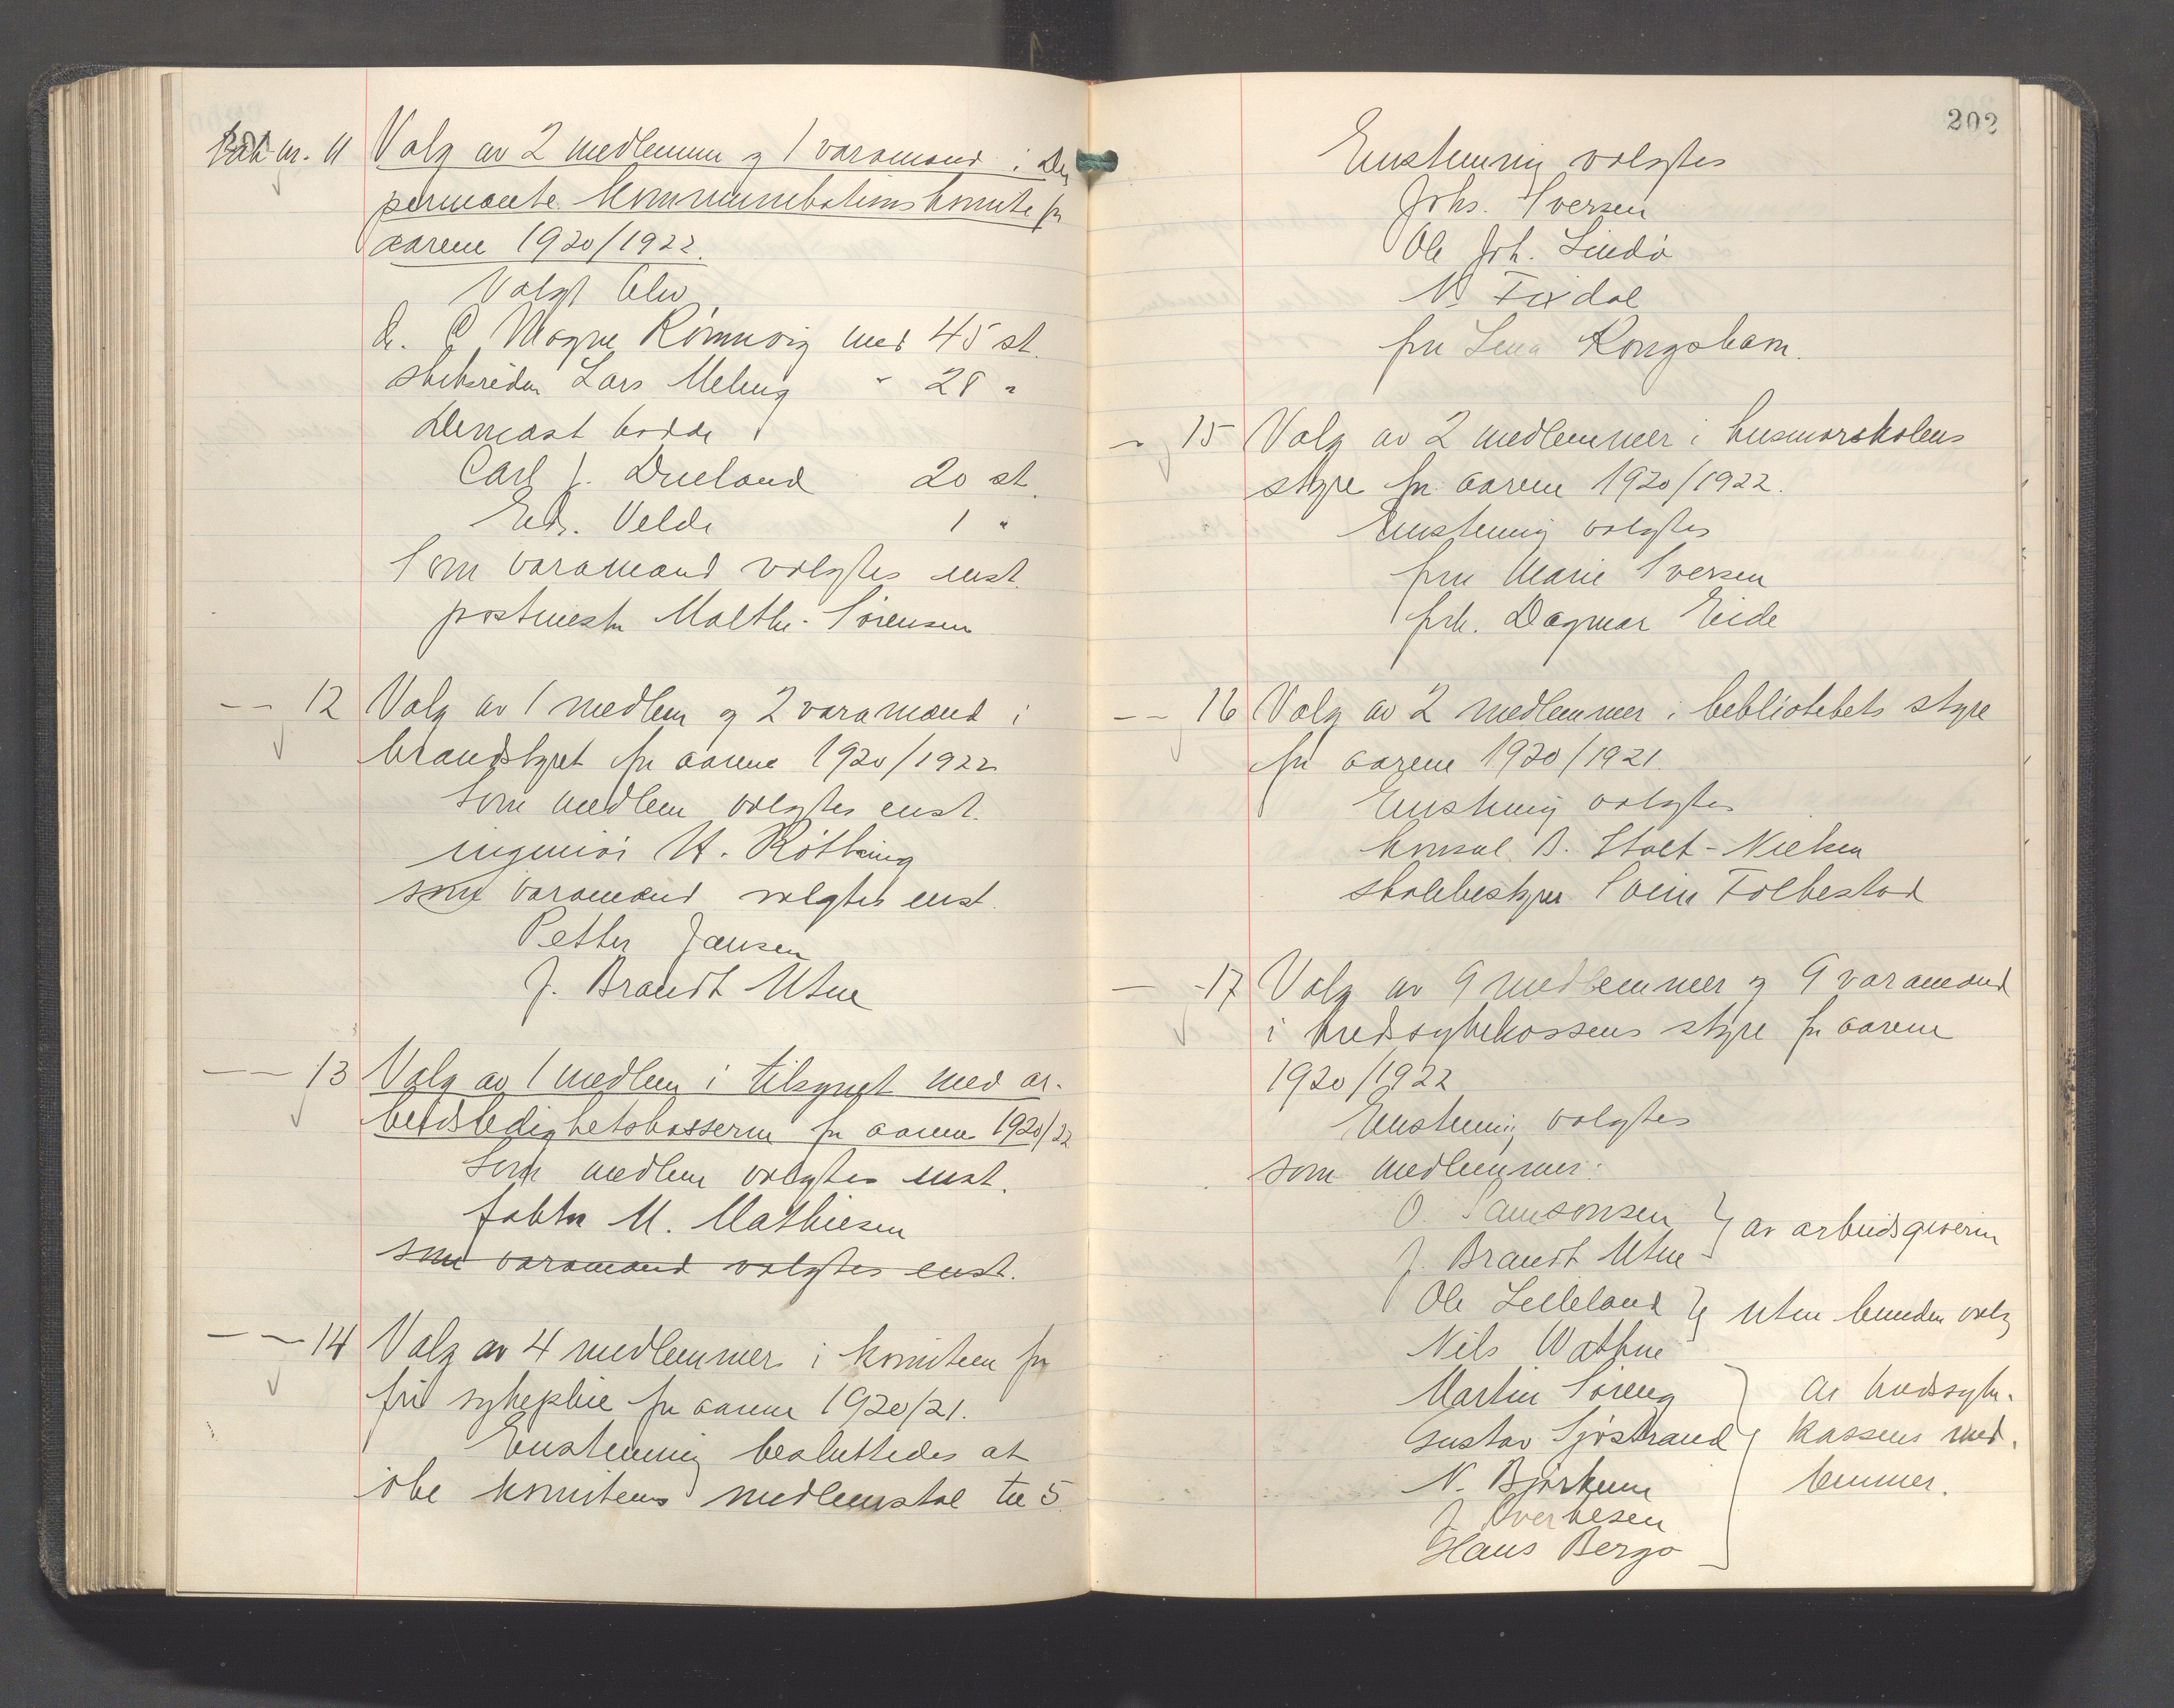 Sak nr. 11 Valg av 2 medlemmer og 1 varamand i den
permanente kommunikationskomite for
aarene 1920/1922.
Valgt blev
dr. Magne Rømmvig med 45 st.
skibsreder Lars Meling " 28 "
Dernæst hadde
Carl J. Dueland 20 st.
Edv. Velde 1 "
Som varamand valgtes enst.
postmester Malthe-Sørensen
— — 12 Valg av 1 medlem og 2 varamænd i
brandstyret for aarene 1920/1922
Som medlem valgtes enst.
ingeniør H. Røthing
som varamænd valgtes enst.
Petter Jansen
J. Brandt Utne
— — 13 Valg av 1 medlem i tilsynet med ar-
beidsledighetskasserne for aarene 1920/22
Som medlem valgtes enst.
faktor M. Mathiesen
som varamand valgtes enst.
— — 14 Valg av 4 medlemmer i komiteen for
fri sykepleie for aarene 1920/21.
Enstemmig besluttedes at
øke komiteens medlemstal til 5
202
Enstemmig valgtes
Johs. Iversen
Ole Joh. Lindø
N. Tixdal
fru Lena Kongsham.
— 15 Valg av 2 medlemmer i husmorskolens
styre for aarene 1920/1922.
Enstemmig valgtes
fru Marie Iversen
frk. Dagmar Eide
— — 16 Valg av 2 medlemmer i bibliotekets styre
for aarene 1920/1921.
Enstemmig valgtes
konsul B. Stolt-Nielsen
skolebestyrer Svein Folkestad
— - 17 Valg av 9 medlemmer og 9 varamænd
i kredssykekassens styre for aarene
1920/1922
Enstemmig valgtes
som medlemmer:
O. Samsonsen
J. Brandt Utne } av arbeidsgiverne
Ole Lilleland
Nils Wathne } uten bunden valg
Martin Søreng } Av kredssyke-
Gustav Sjøstrand kassens med-
N. Bjørkum lemmer.
J. Sverkesen
Hans Bergo